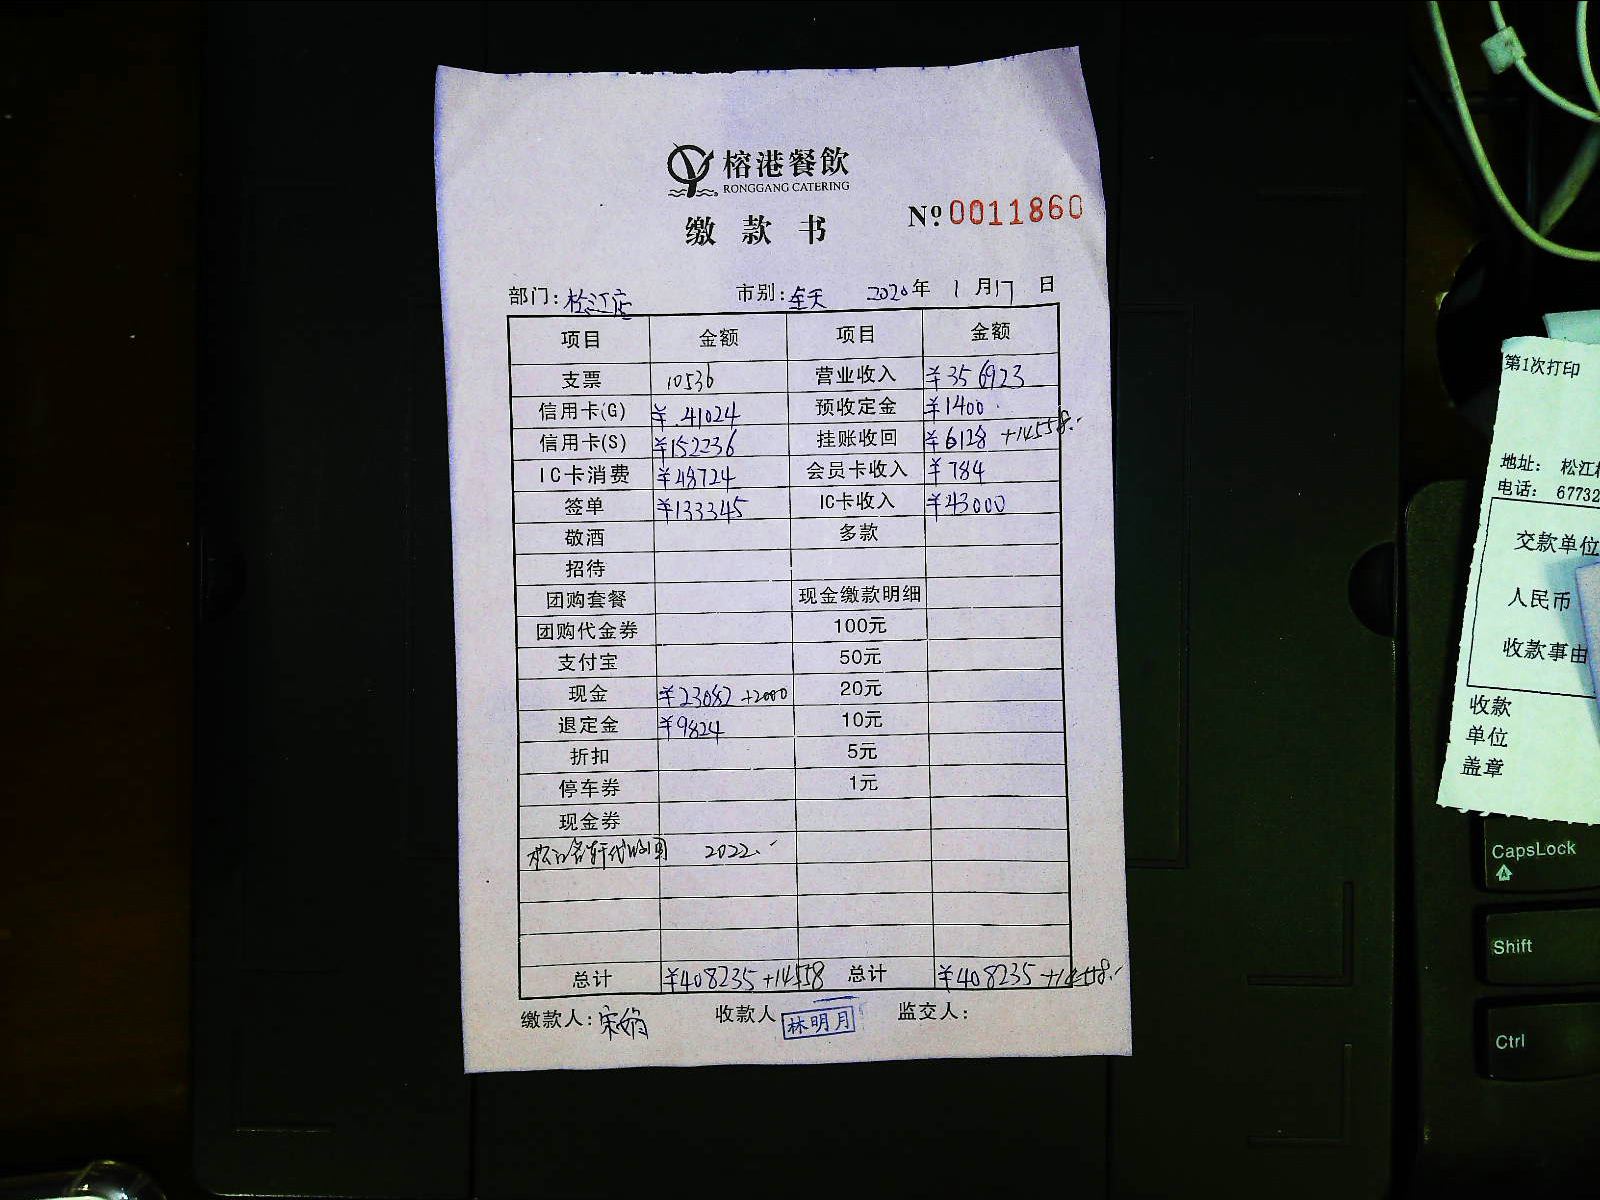 榕港餐飲
RONGGANG CATERING
缴款书
Nº 0011860
部门: 松江店 市别: 全天 2020年 1月17日
项目 金额 项目 金额
支票 10536 营业收入 ¥356923
信用卡(G) ¥41024 预收定金 ¥1400
信用卡(S) ¥152236 挂账收回 ¥6128 +14558.-
IC卡消费 ¥48724 会员卡收入 ¥784
签单 ¥133345 IC卡收入 ¥43000
敬酒 多款
招待
团购套餐 现金缴款明细
团购代金券 100元
支付宝 50元
现金 ¥23082 +2000 20元
退定金 ¥9824 10元
折扣 5元
停车券 1元
现金券
2022.-
总计 ¥408235 +14558 总计 ¥408235 +14558.-
缴款人: 宋娟 收款人 林明月 监交人:
第1次打印
地址: 松江
电话: 67732
交款单位
人民币
收款事由
收款
单位
盖章
CapsLock
Shift
Ctrl